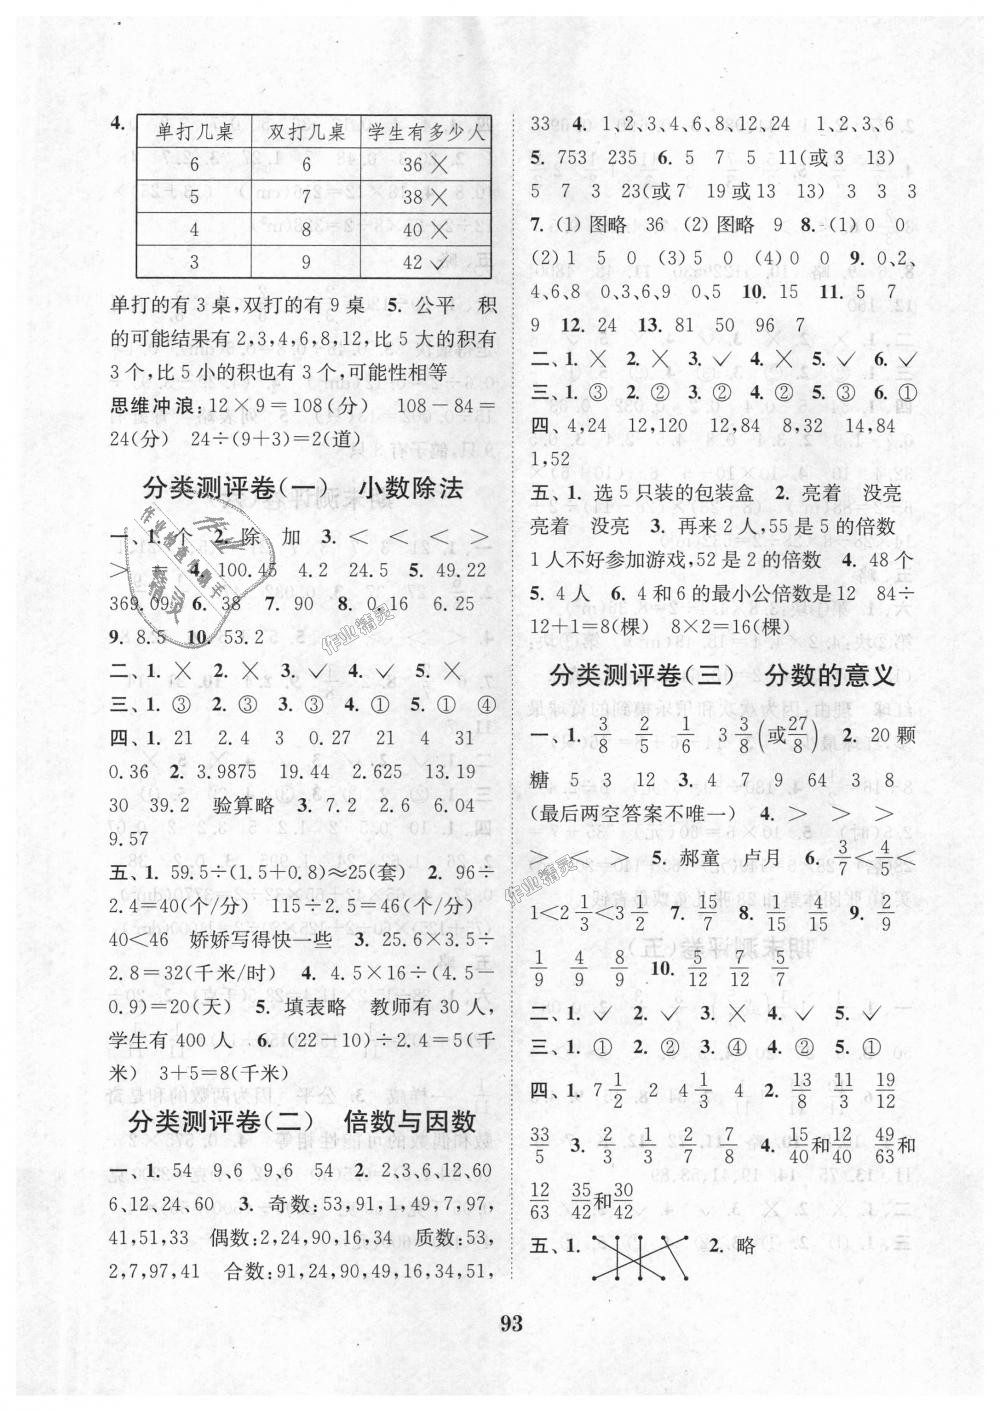 4.
单打几桌 双打几桌 学生有多少人
6 6 36 ×
5 7 38 ×
4 8 40 ×
3 9 42 ✓
单打的有 3 桌，双打的有 9 桌 5. 公平 积
的可能结果有 2,3,4,6,8,12，比 5 大的积有
3 个，比 5 小的积也有 3 个，可能性相等
思维冲浪：12×9=108(分) 108-84=
24(分) 24÷(9+3)=2(道)
分类测评卷(一) 小数除法
一、1. 个 2. 除 加 3. < < < >
> = 4. 100.45 4.2 24.5 5. 49.22
369.09 6. 38 7. 90 8. 0.16 6.25
9. 8.5 10. 53.2
二、1. × 2. × 3. ✓ 4. ✓ 5. ×
三、1. ③ 2. ③ 3. ③ 4. ① 5. ① ④
四、1. 21 2.4 3 0.27 21 4 31
0.36 2. 3.9875 19.44 2.625 13.19
30 39.2 验算略 3. 7.2 2.6 6.04
9.57
五、1. 59.5÷(1.5+0.8)≈25(套) 2. 96÷
2.4=40(个/分) 115÷2.5=46(个/分)
40<46 娇娇写得快一些 3. 25.6×3.5÷
2.8=32(千米/时) 4. 4.5×16÷(4.5-
0.9)=20(天) 5. 填表略 教师有 30 人，
学生有 400 人 6. (22-10)÷2.4=5(千
米) 3+5=8(千米)
分类测评卷(二) 倍数与因数
一、1. 54 9、6 9、6 54 2. 2、3、6、12、60
6、12、24、60 3. 奇数：53,91,1,49,7,97,
41,51,33 偶数：2,24,90,16,34 质数：53,
2,7,97,41 合数：91,24,90,49,16,34,51,
33 4. 1、2、3、4、6、8、12、24 1、2、3、6
5. 753 235 6. 5 7 5 11(或 3 13)
5 7 3 23(或 7 19或 13 13) 3 3 3
7. (1) 图略 36 (2) 图略 9 8. (1) 0 0
(2) 1 5 0 (3) 5 0 (4) 0 0 9. 0、2、
4、6、8 0、3、6、9 0、5 10. 15 11. 5 7
9 12. 24 13. 81 50 96 7
二、1. × 2. × 3. ✓ 4. × 5. ✓ 6. ✓
三、1. ③ 2. ② 3. ② 4. ② 5. ③ 6. ①
四、4,24 12,120 12,84 8,32 14,84
1,52
五、1. 选 5 只装的包装盒 2. 亮着 没亮
亮着 没亮 3. 再来 2 人，55 是 5 的倍数
1 人不好参加游戏，52 是 2 的倍数 4. 48 个
5. 4 人 6. 4 和 6 的最小公倍数是 12 84÷
12+1=8(棵) 8×2=16(棵)
分类测评卷(三) 分数的意义
一、1. 3/8 2/5 1/6 3 3/8(或27/8) 2. 20 颗
糖 5 3 12 3. 4 7 9 64 3 8
(最后两空答案不唯一) 4. > > >
> < > 5. 郝童 卢月 6. 3/7<4/5<
1<2 1/3<3 1/2 7. 15/7 8. 1/15 4/15 9. 2/9
1/9 4/9 8/9 10. 5/12 7/12 5/7
二、1. ✓ 2. ✓ 3. × 4. ✓ 5. ✓
三、1. ① 2. ② 3. ④ 4. ② 5. ①
四、1. 7 1/2 2 4 1/2 4 2. 13/8 11/3 19/12
33/5 3. 2/3 1/3 2/7 7/8 4. 15/40和12/40 49/63和
12/63 35/42和30/42
五、1. 2. 略
93
作业精灵
作业检查小助手
作业精灵
作业精灵